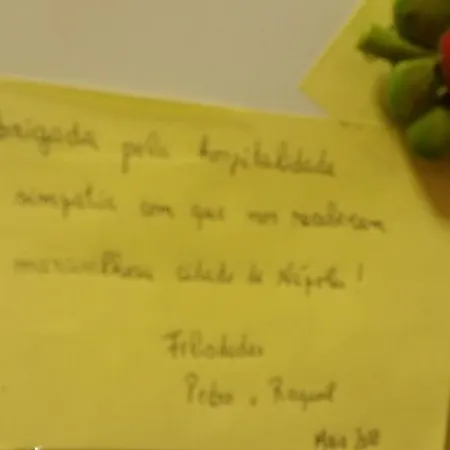 obrigada pela hospitalidade
simpatia com que nos receberam
maravilhosa cidade de Nápoles!
Felicidades
Pedro e Raquel
Maio